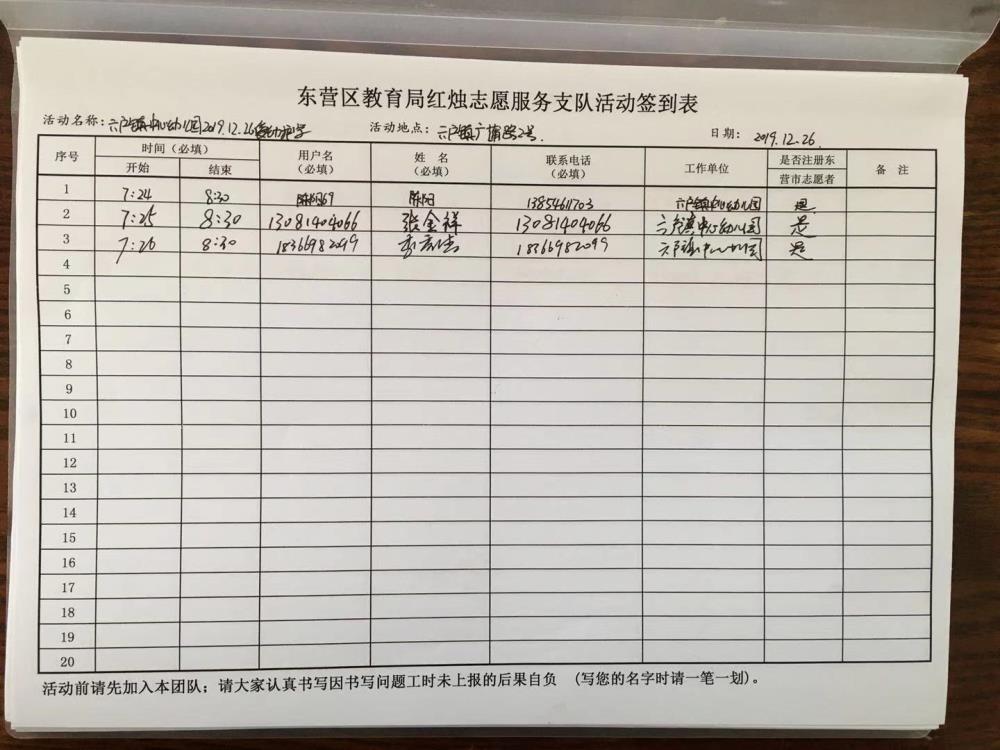 东营区教育局红烛志愿服务支队活动签到表
活动名称：六户镇中心幼儿园2019.12.26 活动地点：六户镇广蒲路2号. 日期：2019.12.26.
序号 时间（必填） 用户名（必填） 姓名（必填） 联系电话（必填） 工作单位 是否注册东营市志愿者 备注
开始 结束
1 7:24 8:30 陈阳69 陈阳 13854611703 六户镇中心幼儿园 是
2 7:25 8:30 13081404066 张金祥 13081404066 六户镇中心幼儿园 是
3 7:26 8:30 18366982099 李 18366982099 六户镇中心幼儿园 是
4
5
6
7
8
9
10
11
12
13
14
15
16
17
18
19
20
活动前请先加入本团队；请大家认真书写因书写问题工时未上报的后果自负 （写您的名字时请一笔一划）。